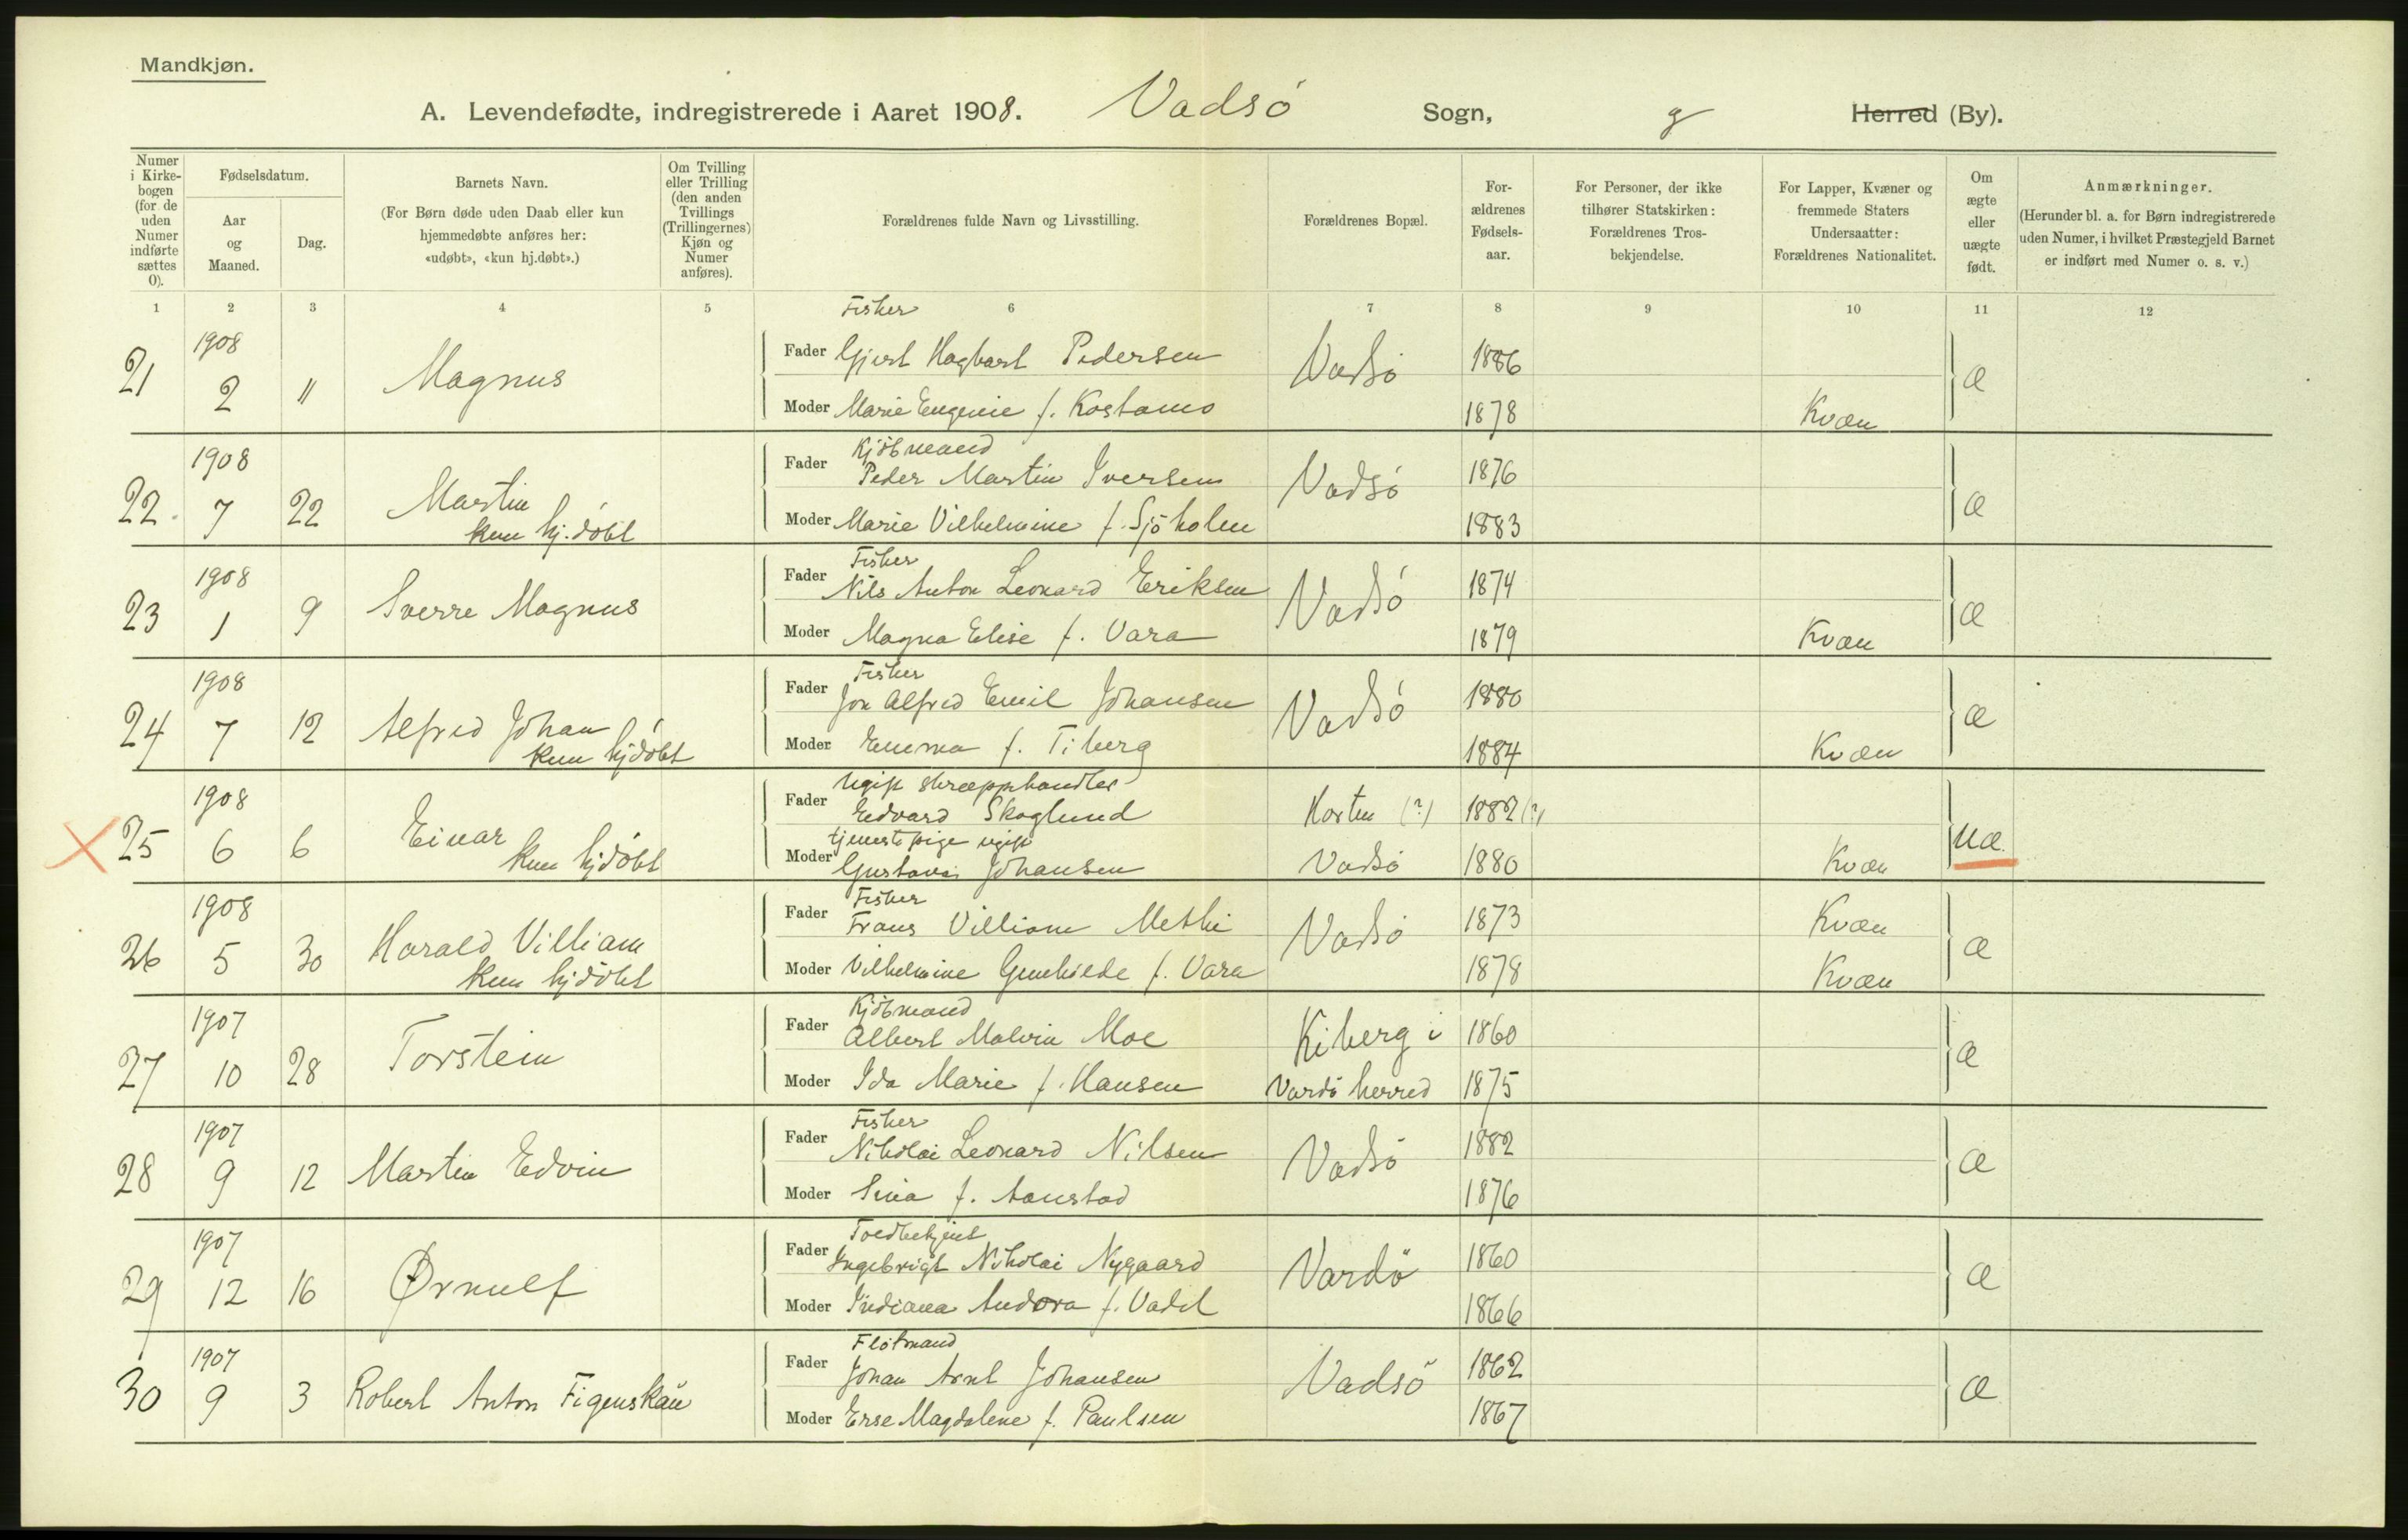 Mandkjøn.
A. Levendefødte, indregistrerede i Aaret 1908. Vadsø Sogn, Herred (By).
Numer i Kirke-bogen (for de uden Numer indførte sættes 0).
Fødselsdatum.
Aar og Maaned.
Dag.
Barnets Navn.
(For Børn døde uden Daab eller kun hjemmedøbte anføres her: «udøbt», «kun hj.døbt».)
Om Tvilling eller Trilling (den anden Tvillings (Trillingernes) Kjøn og Numer anføres).
Forældrenes fulde Navn og Livsstilling.
Forældrenes Bopæl.
For-ældrenes Fødsels-aar.
For Personer, der ikke tilhører Statskirken: Forældrenes Tros-bekjendelse.
For Lapper, Kvæner og fremmede Staters Undersaatter: Forældrenes Nationalitet.
Om ægte eller uægte født.
Anmærkninger.
(Herunder bl. a. for Børn indregistrerede uden Numer, i hvilket Præstegjeld Barnet er indført med Numer o. s. v.)
1 2 3 4 5 6 7 8 9 10 11 12
Fisker
21 1908 2 11 Magnus Fader Gjert Hagbart Pedersen Vadsø 1886 æ
Moder Marie Eugenie f. Kostamo 1878 Kvæn
Kjøbmand
22. 1908 7 22 Martin kun hj.døbt Fader Peder Martin Iversen Vadsø 1876 æ
Moder Marie Vilhelmine f. Sjøholm 1883
Fisker
23 1908 1 9 Sverre Magnus Fader Nils Anton Leonard Eriksen Vadsø 1874 æ
Moder Magna Elise f. Vara 1879 Kvæn
Fisker
24 1908 7 12 Alfred Johan kun hjdøbt Fader Jon Alfred Emil Johansen Vadsø 1880 æ
Moder Emma f. Tiberg 1884 Kvæn
Ugift skræpphandler
25 1908 6 6 Einar kun hjdøbt Fader Edvard Skoglund 1882 (?) uæ.
tjenestepige ugift
Moder Gustava Johansen Vadsø 1880 Kvæn
Fisker
26 1908 5 30 Harald Villiam kun hjdøbt Fader Frans Villiam Methi Vadsø 1873 Kvæn æ
Moder Vilhelmine Gunhilde f. Vara 1878 Kvæn
Kjøbmand
27 1907 10 28 Torstein Fader Albert Malvin Moe Kiberg i 1860 æ
Moder Ida Marie f. Hansen Vardø herred 1875
Fisker
28 1907 9 12 Martin Edvin Fader Nikolai Leonard Nilsen Vadsø 1882 æ
Moder Sina f. Aanstad 1876
Toldbetjent
29 1907 12 16 Ørnulf Fader Ingebrigt Nikolai Nygaard Vardø 1860 æ
Moder Indiana Andora f. Vadel 1866
Fløtmand
30 1907 9 3 Robert Anton Figenskau Fader Johan Arnt Johansen Vadsø 1862 æ
Moder Erse Magdalene f. Paulsen 1867